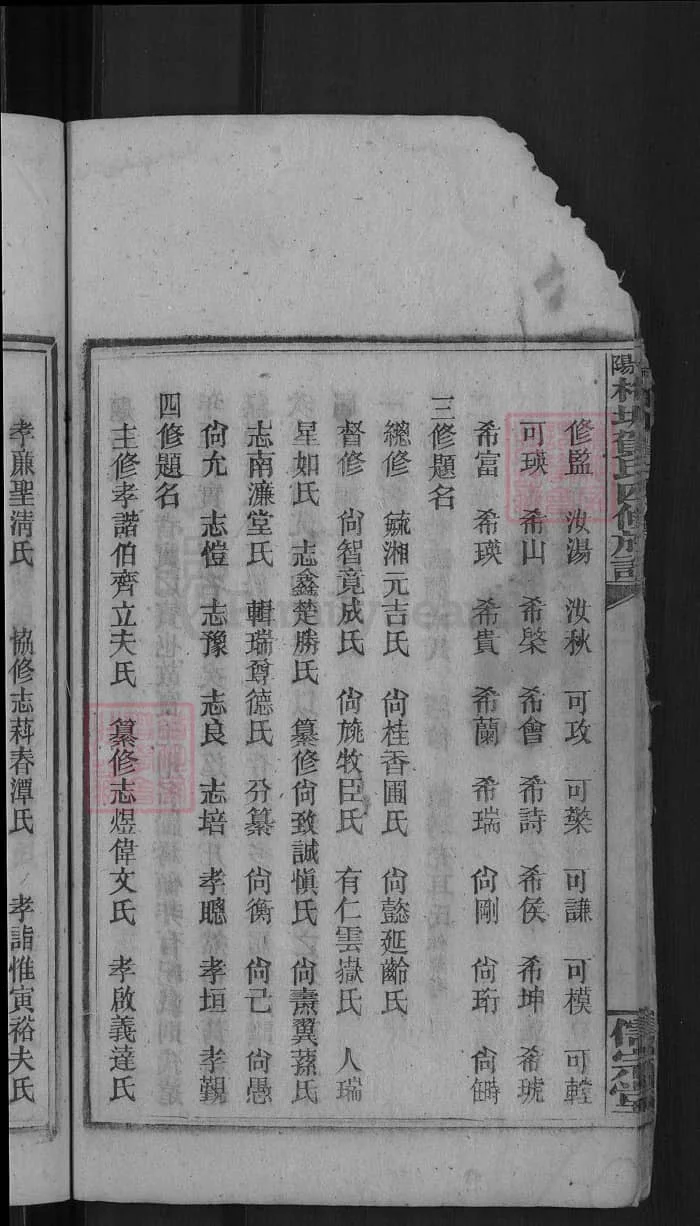 修監 汝湯 汝秋 可攻 可㯶 可謙 可模 可𨎌
可瑛 希山 希棨 希會 希詩 希侯 希坤 希琥
希富 希瑛 希貴 希蘭 希瑞 尙剛 尙珩 尙疇
三修題名
總修 毓湘元吉氏 尙桂香圃氏 尙懿延齡氏
督修 尙智竟成氏 尙旄牧臣氏 有仁雲嶽氏 人瑞
星如氏 志鑫楚勝氏 纂修尙致誠愼氏 尙燾翼蓀氏
志南濂堂氏 輯瑞尊德氏 分纂 尙衡 尙己 尙愚
尙允 志愷 志豫 志良 志培 孝聰 孝垣 孝觀
四修題名
主修孝諧伯齊立夫氏 纂修志煜偉文氏 孝啟義達氏
孝廉聖淸氏 協修志萪春潭氏 孝詣惟寅裕夫氏